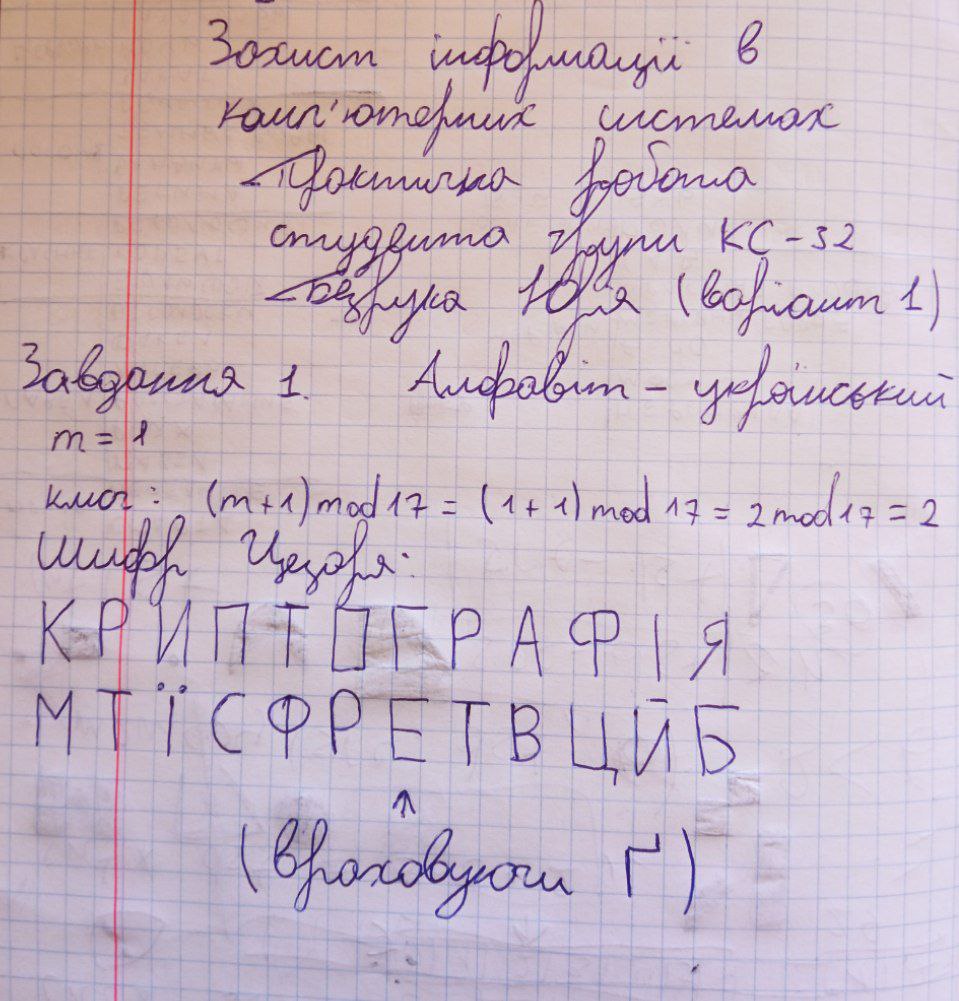 Захист інформації в
комп'ютерних системах
Практична робота
студента групи КС-32
Безрука Юрія (варіант 1)
Завдання 1. Алфавіт - український
m = 1
ключ: (m+1) mod 17 = (1+1) mod 17 = 2 mod 17 = 2
Шифр Цезаря:
КРИПТОГРАФІЯ
МТЇСФРЕТВЦЙБ
↑
(враховуючи Ґ)